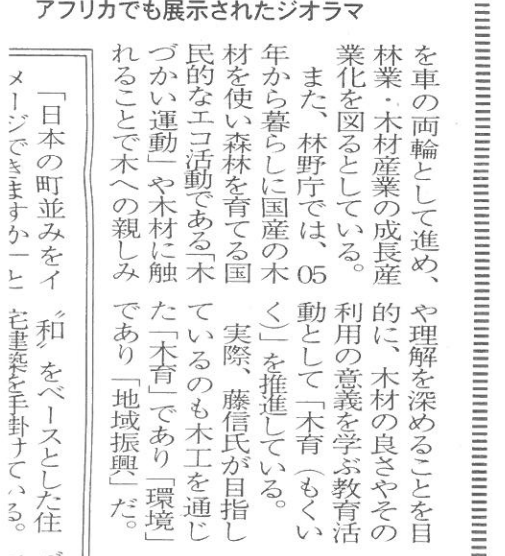 アフリカでも展示されたジオラマ
を車の両輪として進め、
林業・木材産業の成長産
業化を図るとしている。
また、林野庁では、05
年から暮らしに国産の木
材を使い森林を育てる国
民的なエコ活動である「木
づかい運動」や木材に触
れることで木への親しみ
や理解を深めることを目
的に、木材の良さやその
利用の意義を学ぶ教育活
動として「木育（もくい
く）」を推進している。
実際、藤信氏が目指し
ているのも木工を通じ
た「木育」であり「環境」
であり「地域振興」だ。
「日本の町並みをイ
メージできますか」と
〝和〟をベースとした住
宅建築を手掛けている。